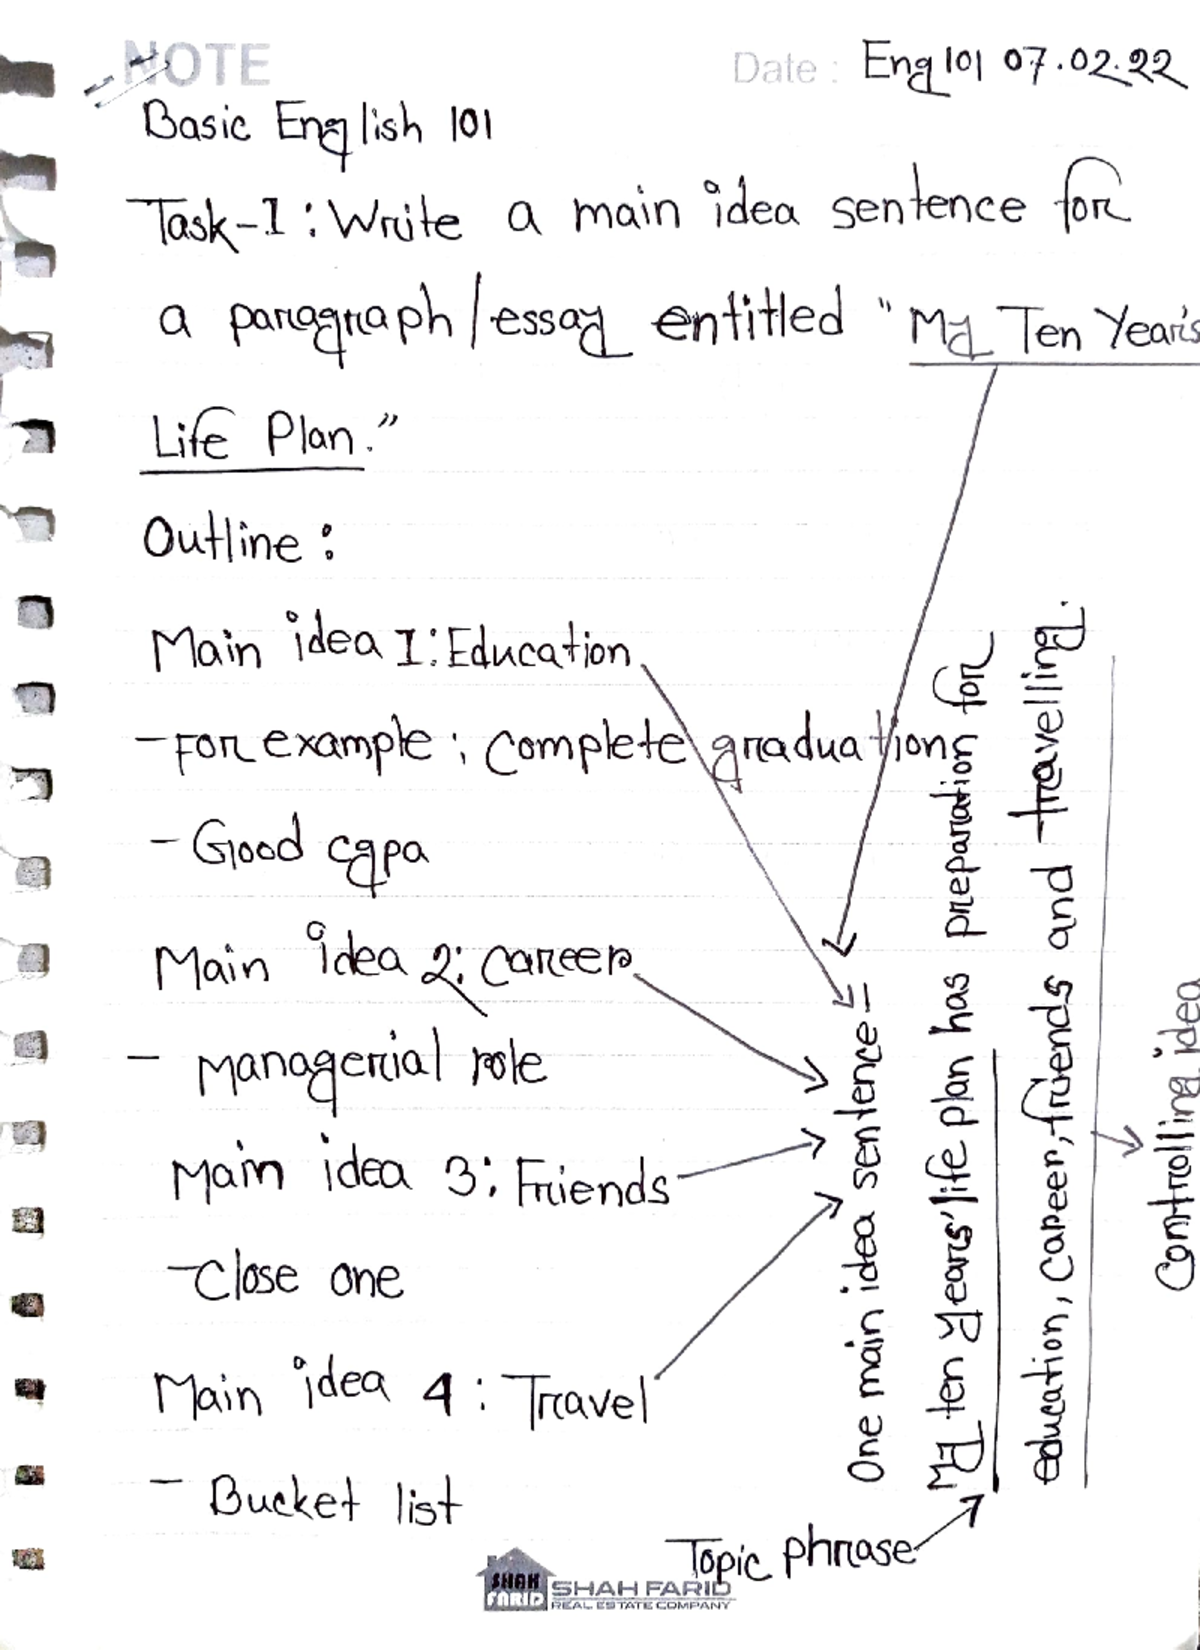 NOTE
Date : Eng 101 07.02.22
Basic English 101
Task-1 : Write a main idea sentence for
a paragraph/essay entitled "My Ten Years
Life Plan."
Outline :
Main idea 1: Education
- For example : Complete graduation
- Good cgpa
Main idea 2: Career
- Managerial role
Main idea 3: Friends
- Close one
Main idea 4 : Travel
- Bucket list
One main idea sentence -
My ten years' life plan has preparation for
education, career, friends and travelling.
Controlling idea
Topic phrase
SHAH FARID
SHAH FARID
REAL ESTATE COMPANY